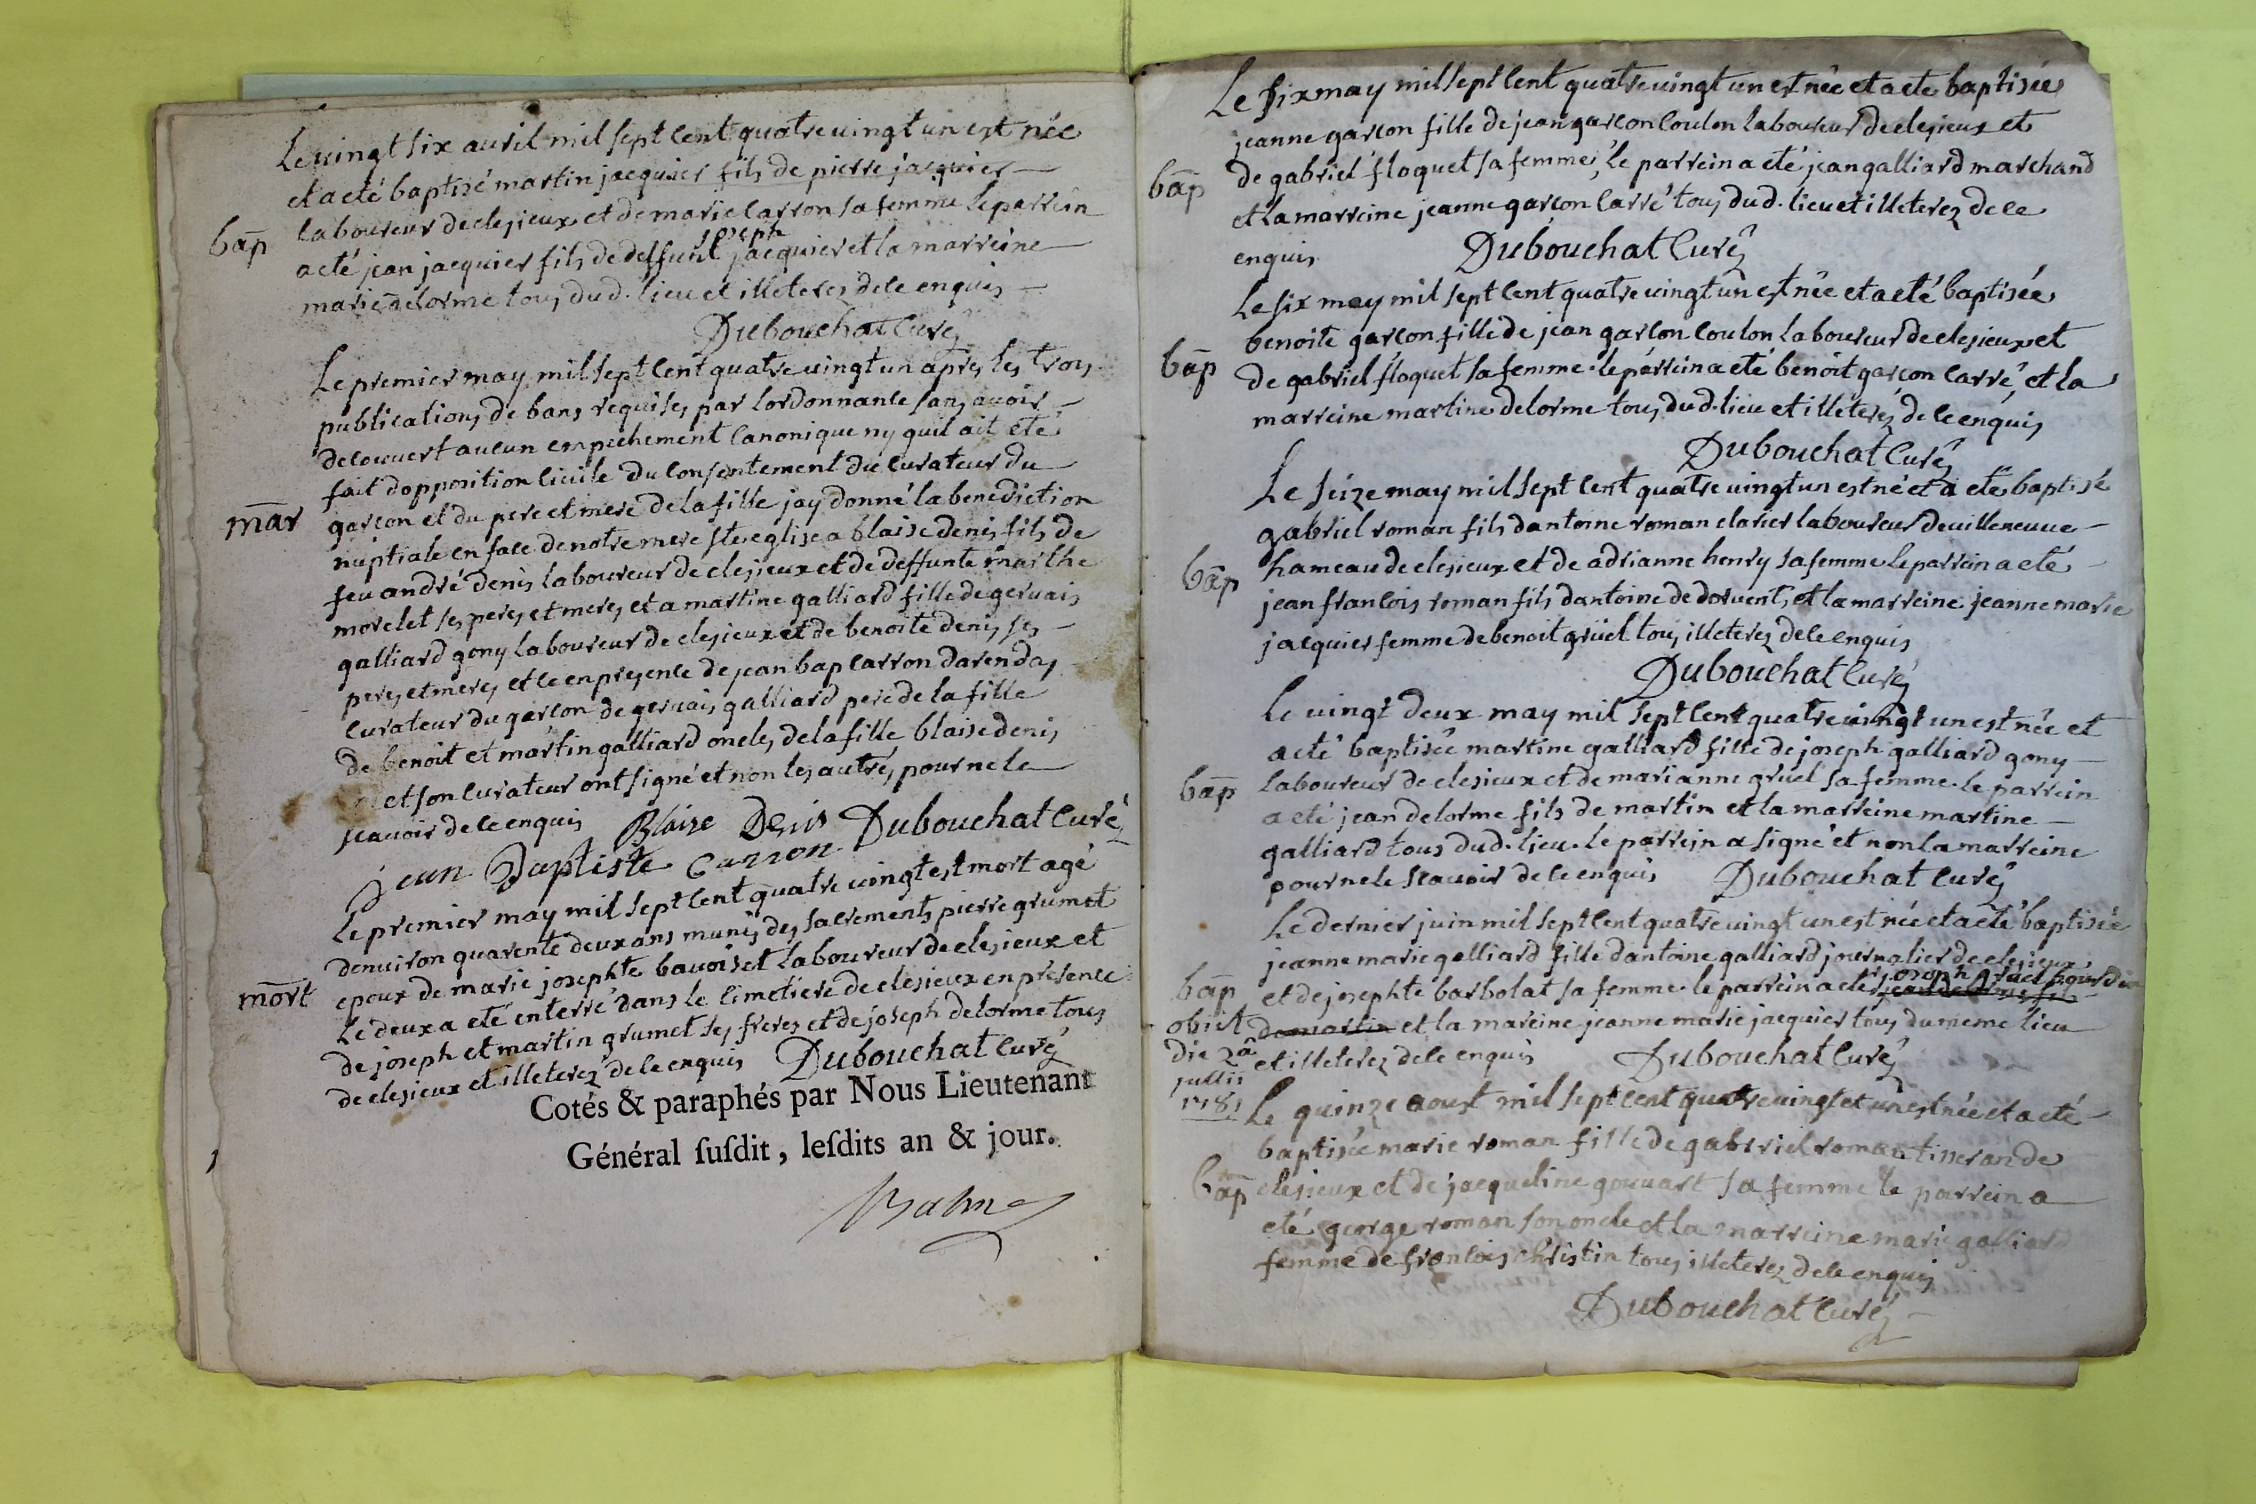 Le vingt six auril mil sept cent quatre uingt un est née
et a eté baptisé martin jacquier fils de pierre jacquier
bāp
laboureur de clesieux et de marie carron sa femme le parrein
joseph
a eté jean jacquier fils de deffunt jacquier et la marreine
marie delorme tous dud. lieu et illeterez de ce enquis
Dubouchat Curé
Le premier may mil sept cent quatre uingt un apres les trois
publications de bans requises par lordonnance sans auoir
decouuert aucun empechement canonique ny quil ait eté
fait dopposition ciuile du consentement du curateur du
mār
garcon et du pere et mere de la fille jay donné la benediction
nuptiale en face de notre mere ste eglise a blaise denis fils de
feu andré denis laboureur de clesieux et de deffunte marthe
morelet ses peres et meres et a martine galliard fille de geruais
galliard gony laboureur de clesieux et de benoite denis ses
peres et meres et ce en presence de jean bap carron darendas
curateur du garcon de geruais galliard pere de la fille
de benoit et martin galliard oncles de la fille blaise denis
et son curateur ont signé et non les autres pour ne le
scauoir de ce enquis Blaise Denis Dubouchat Curé
jean Baptiste Carron
Le premier may mil sept cent quatre uingt est mort agé
denuiron quarente deux ans munis des sacrements pierre grumet
epoux de marie josephte bauoiset laboureur de clesieux et
mōrt
le deux a eté enterré dans le cimetiere de clesieux en presence
de joseph et martin grumet ses freres et de joseph delorme tous
de clesieux et illeterez de ce enquis Dubouchat Curé
Cotés & paraphés par Nous Lieutenant
Général ſuſdit, leſdits an & jour.
Le six may mil sept cent quatre uingt un est née et a eté baptisée
jeanne garcon fille de jean garcon coulon laboureur de clesieux et
bāp
de gabriel floquet sa femme, le parrein a eté jean galliard marchand
et la marreine jeanne garcon carré tous dud. lieu et illeterez de ce
enquis Dubouchat Curé
Le six may mil sept cent quatre uingt un est née et a eté baptisée
benoite garcon fille de jean garcon coulon laboureur de clesieux et
bāp
de gabriel floquet sa femme. le parrein a eté benoit garcon carré, et la
marreine martine delorme tous dud. lieu et illeterés de ce enquis
Dubouchat Curé
Le seize may mil sept cent quatre uingt un est né et a eté baptisé
gabriel roman fils dantoine roman clarier laboureur de uilleneuue
bāp
hameau de clesieux et de adrianne henry sa femme le parrein a eté
jean francois roman fils dantoine de doruent, et la marreine jeanne marie
jacquier femme de benoit gruel tous illeterez de ce enquis
Dubouchat Curé
Le uingt deux may mil sept cent quatre uingt un est née et
a eté baptisée martine galliard fille de joseph galliard gony
bāp
laboureur de clesieux et de marianne gruel sa femme. le parrein
a eté jean delorme fils de martin et la marreine martine
galliard tous dud. lieu. le parrein a signé et non la marreine
pour ne le scauoir de ce enquis Dubouchat Curé
Le dernier juin mil sept cent quatre uingt un est née et a eté baptisée
jeanne marie galliard fille dantoine galliard journalier de clesieux
joseph gruel bourdin
bāp
et de josephte barbolat sa femme. le parrein a eté jean delorme fils
obiit
de martin et la mareine jeanne marie jacquier tous du meme lieu
die 2â
et illeterez de ce enquis Dubouchat Curé
jullii
1781
Le quinze aoust mil sept cent quatre uingt et un est née et a eté
baptisée marie roman fille de gabriel roman tisseran de
bāp
clesieux et de jacqueline gouuart sa femme le parrein a
eté george roman son oncle et la marreine marie galliard
femme de francois christin tous illeterez de ce enquis
Dubouchat Curé